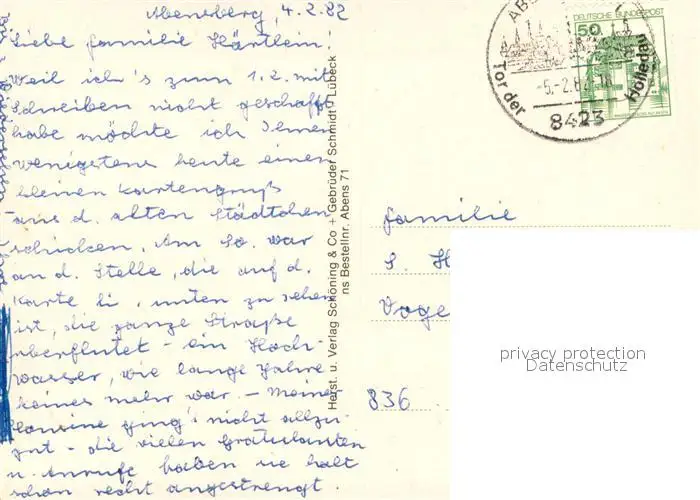 Abensberg, 4.2.82
Liebe Familie Härtlein!
Weil ich's zum 1.2. mit
Schreiben nicht geschafft
habe möchte ich Ihnen
wenigstens heute einen
kleinen Kartengruß
aus d. alten Städtchen
schicken. Am So. war
an d. Stelle, die auf d.
Karte li. unten zu sehen
ist, die ganze Straße
überflutet - ein Hoch-
wasser, wie lange Jahre
keines mehr war. - Meiner
ging's nicht allzu-
gut - die vielen Gratulanten
u. Anrufe haben sie halt
schon recht angestrengt.
Herst. u. Verlag Schöning & Co + Gebrüder Schmidt Lübeck
ns Bestellnr. Abens 71
DEUTSCHE BUNDESPOST
50
Tor der Holledau
-5.-2.82-18
8423
Familie
S. H
Voge
836
privacy protection
Datenschutz